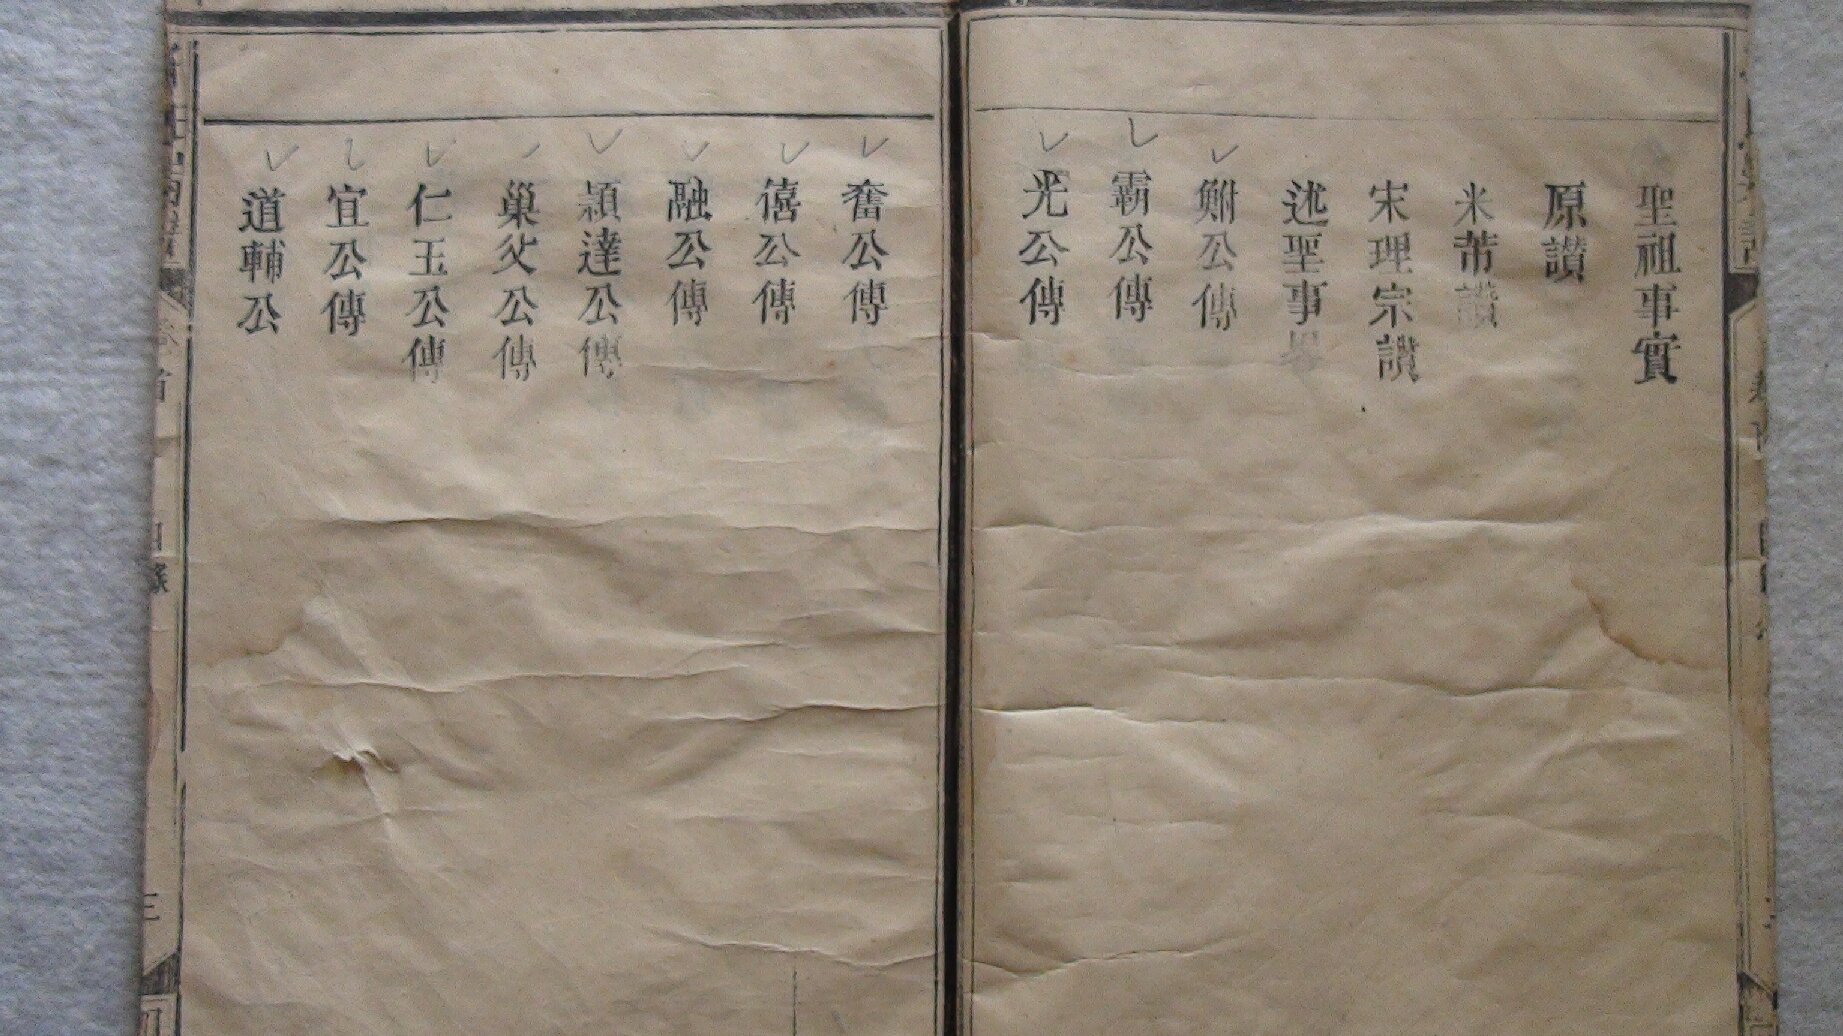 聖祖事實
原讚
米芾讚
宋理宗讚
述聖事畧
鮒公傳
霸公傳
光公傳
奮公傳
僖公傳
融公傳
頴達公傳
巢父公傳
仁玉公傳
宜公傳
道輔公
三